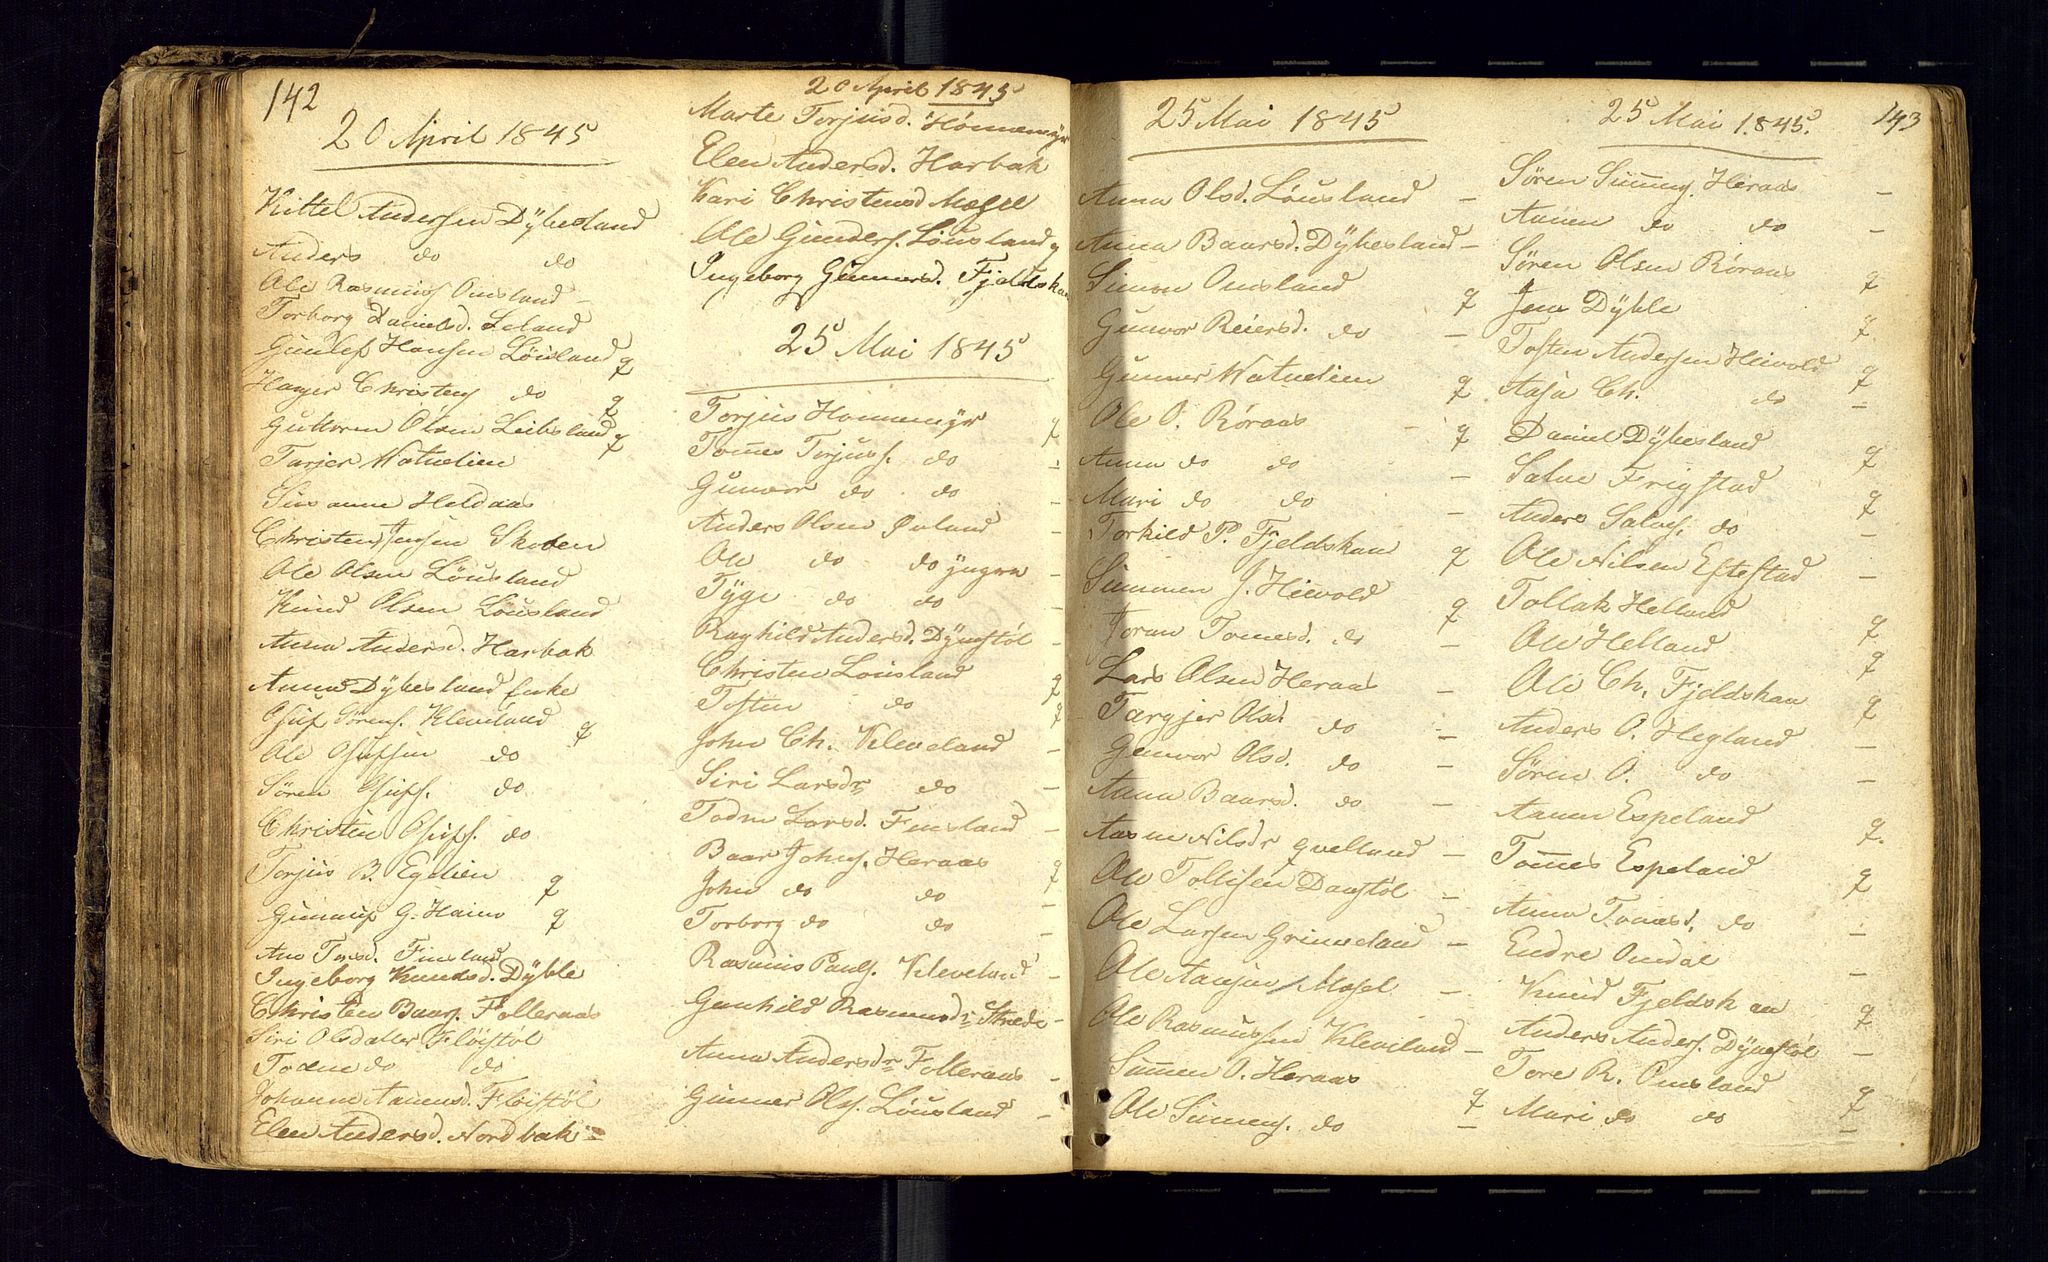 142
20 April 1845
Kittel Andersen Dÿbesland
Anders do do
Ole Rasmus Omsland -
Torborg Daniels d. Leland
Gunlef Hansen Løusland q
Harjer Christens do q
Guttorm Olsen Leibsland q
Tarjer Watnelien
Susanne Heldaas
Christen Jensen Skoben
Ole Olsen Løusland
Knud Olsen Løusland
Anna Andersd. Harbak
Anna Dÿbesland Enke
Osuf Sörens. Kleveland q
Ole Osufsen do
Søren Osufs. do
Christen Osufs. do
Torjus B. Egelien q
Gunnuf G. Haino q
Ane Tored. Finsland
Ingeborg Knudsd. Dÿble
Christen Baars. Folleraas
Siri Olsdatter Fløistøl
Todne do do
Johanne Aanensd. Fløistøl
Elen Andersd. Nordbak -
20 April 1845
Marte Torjusd. Hommemÿr
Elen Andersd. Harbak
Kari Christensd Mosel
Ole Gunders. Løusland q
Ingeborg Gunnersd. Fjeldskaa
25 Mai 1845
Torjus Hommemÿr q
Tomes Torjuss. do -
Gunvor do do -
Anders Olsen Øvland -
Ole do do ÿngra -
Tÿge do do -
Raghild Andersd. Dÿnestøl -
Christen Løusland q
Tosten do q
John Ch. Kleveland -
Siri Larsdr do -
Todne Larsd. Finsland -
Baar Johns. Heraas q
John do do -
Torborg do do -
Rasmus Pauls. Kleveland -
Gunhild Rasmusdr Strede -
Anna Andersdr Folleraas -
Gunner Ols. Løusland -
25 Mai 1845
Anna Olsd. Løusland -
Anna Baarsd. Dÿbesland -
Simon Omsland q
Gunvor Reiersd. do -
Gunner Watnelien q
Ole O. Røraas - q
Anna do do -
Mari do do -
Torkild P. Fjeldskaa q
Summen J. Hievold q
Joran Tomesd. do -
Lars Olsen Heraas -
Targjer Olsd. do -
Gunvor Olsd. do -
Anna Baarsd. do -
Aasne Nilsdr qvelland -
Ole Tollisen Daastøl -
Ole Larsen Grimeland -
Ole Aanen Mosel -
Ole Rasmussen Kleveland -
Summen O. Heraas q
Ole Summens. do -
25 Mai 1845. 143
Søren Summens. Heraas -
Aanen do do -
Søren Olsen Røraas q
Jens Dÿble q
Tosten Andersen Hievold q
Aasa Ch. do -
Daniel Dÿbesland q
Salve Frigstad q
Anders Salves. do -
Ole Nilsen Eftestad -
Tollak Helland q
Ole Helland q
Ole Ch. Fjeldskaa q
Anders O. Hegland -
Søren O. do -
Aanen Espeland q.
Tomes Espeland q
Anna Tomasd. do -
Endre Omdal -
Knud Fjeldskaa q
Anders Anders. Dÿnestøl -
Tore R. Omsland q
Mari do do -